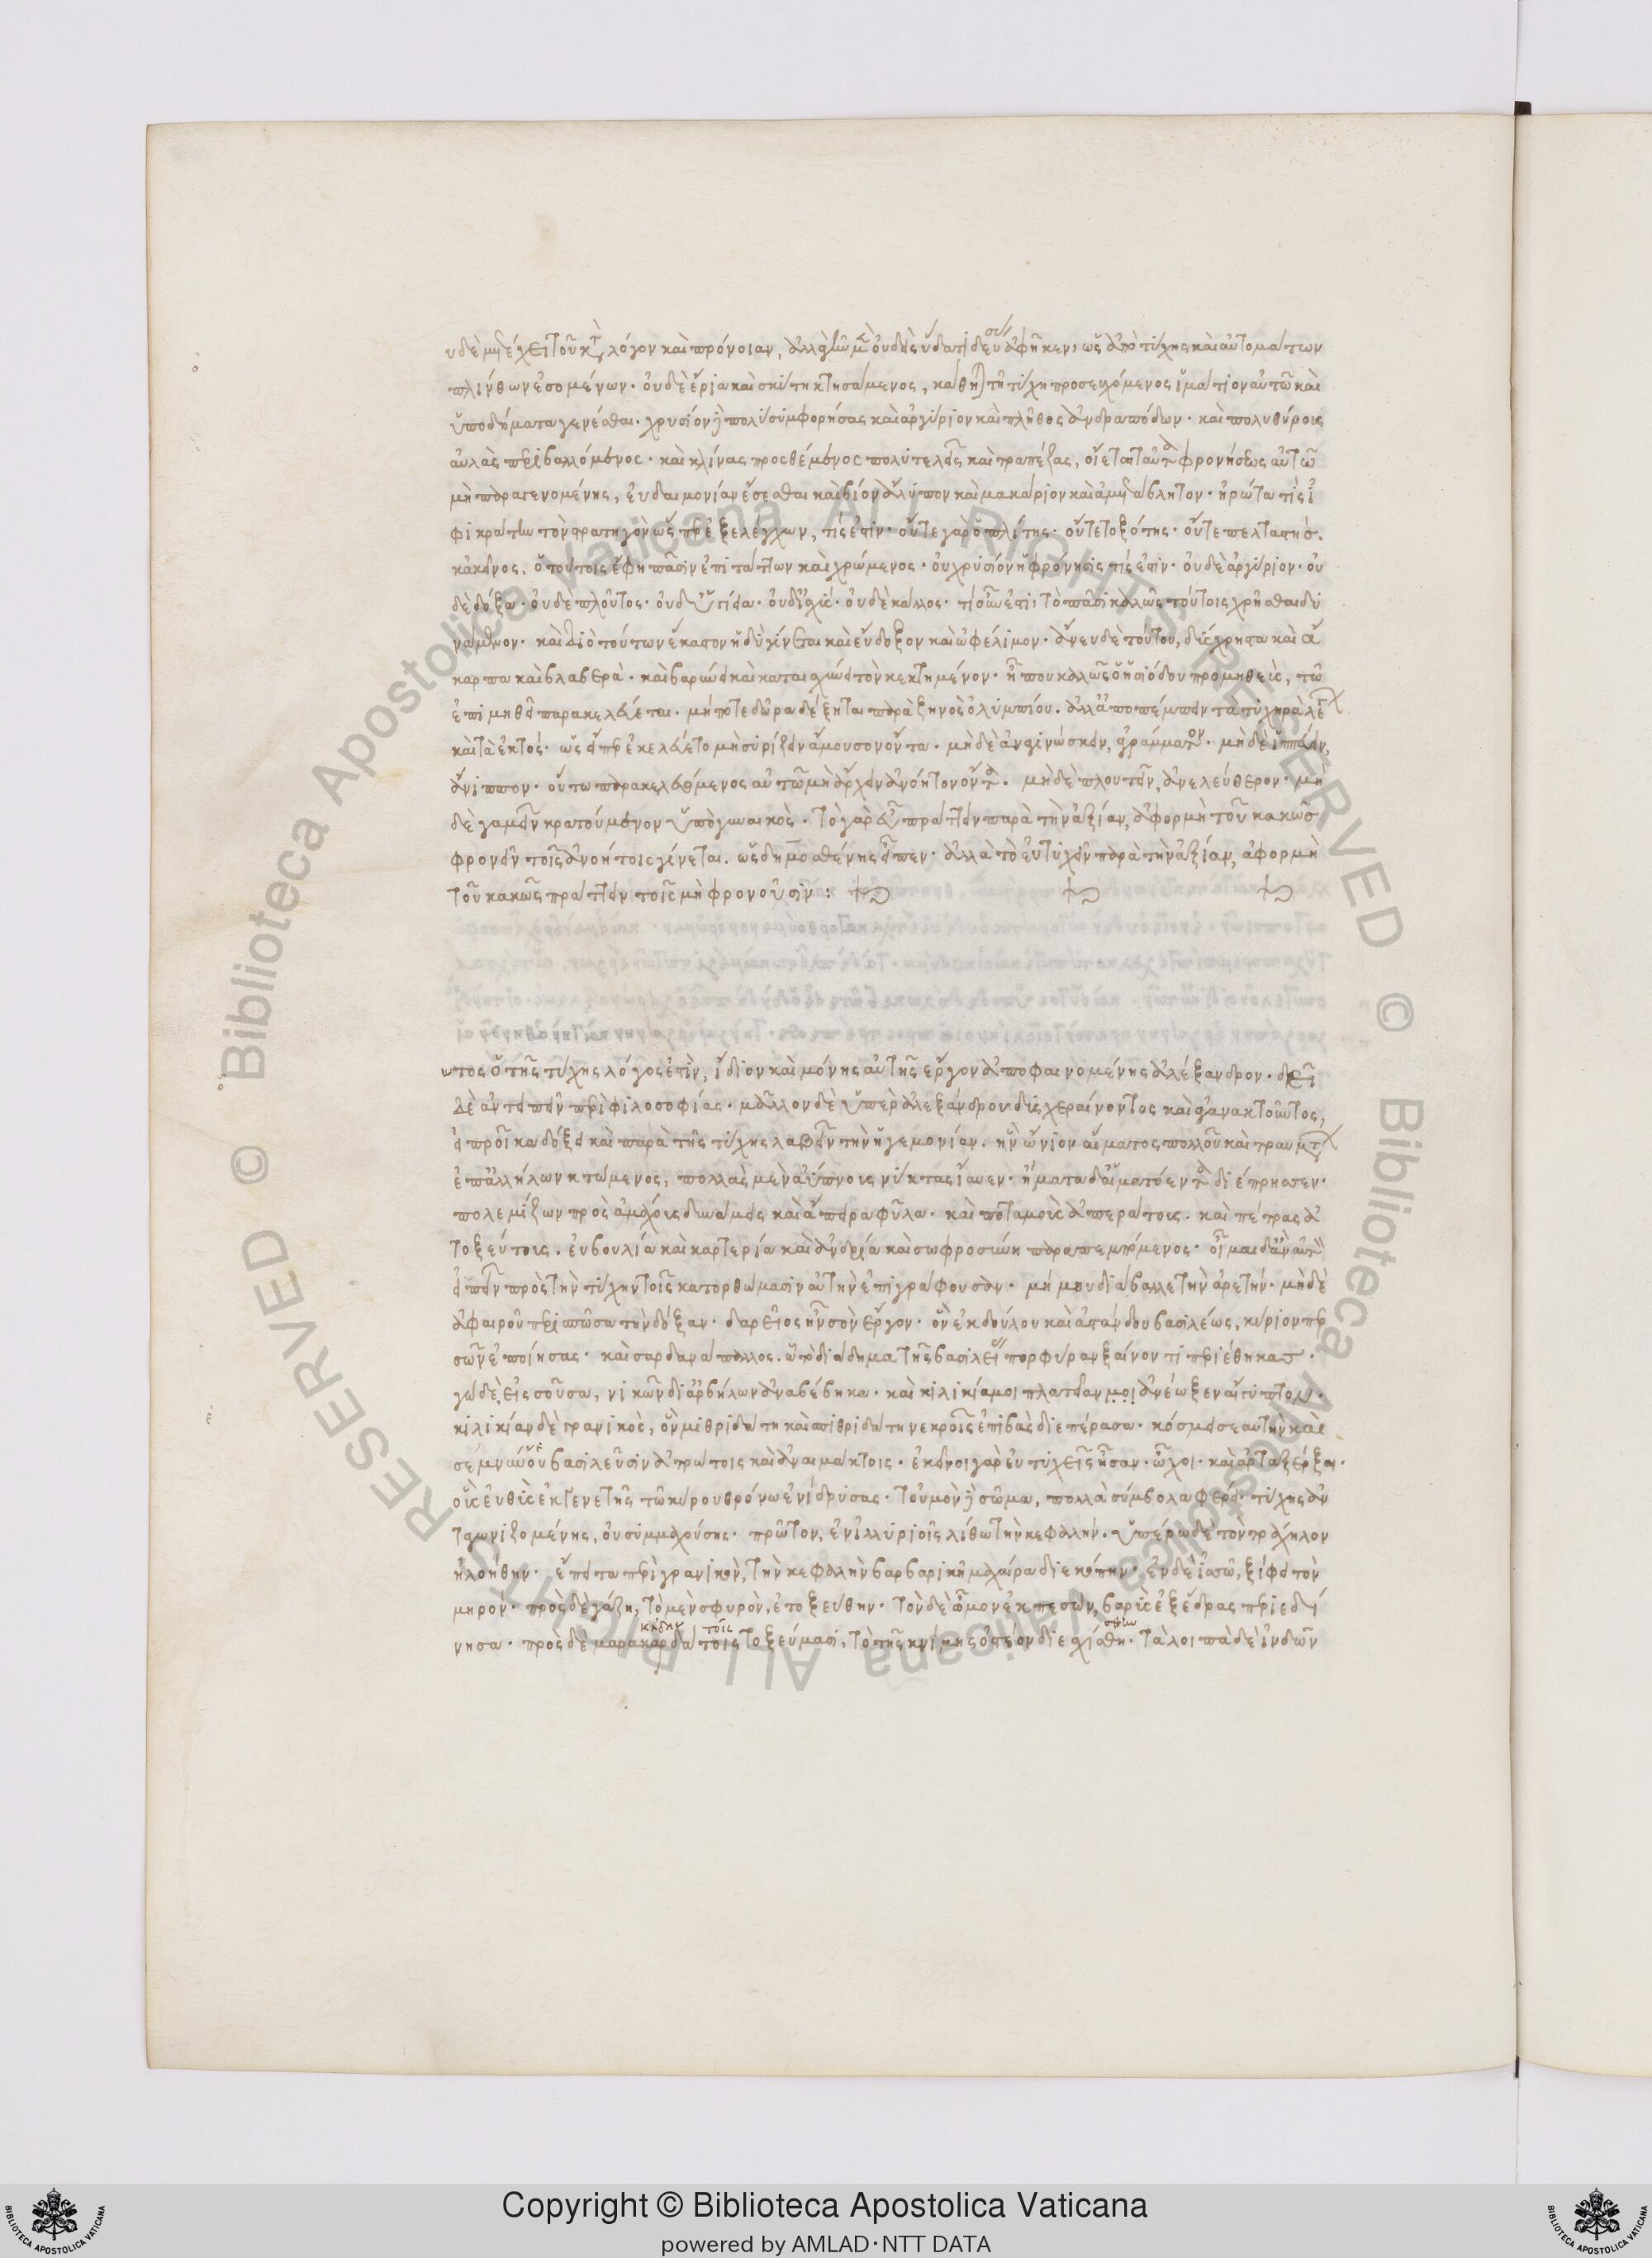 υδὲ μὴ ἔχει τοῦ κατὰ λόγον καὶ πρόνοιαν, ἀλλὰ γῆν μὲν οὐδεὶς ὕδατι δεύσας ἀφῆκεν, ὡς ἀπὸ τύχης καὶ αὐτομάτως
πλίνθων ἐσομένων· οὐδὲ ἔρια καὶ σκύτη κτησάμενος, κάθηται τῇ τύχῃ προσευχόμενος ἱμάτιον αὐτῶ καὶ
ὑποδήματα γενέσθαι· χρυσίον δὲ πολὺ συμφορήσας καὶ ἀργύριον καὶ πλῆθος ἀνδραπόδων· καὶ πολυθύρους
αὐλὰς περιβαλλόμενος· καὶ κλίνας προσθέμενος πολυτελεῖς καὶ τραπέζας, οἴεται ταῦτα φρονήσεως αὐτῶ
μὴ παραγενομένης, εὐδαιμονίαν ἔσεσθαι καὶ βίον ἄλυπον καὶ μακάριον καὶ ἀμετάβλητον· ἠρώτα τὶς ἰ
φικράτην τὸν στρατηγὸν ὥσπερ ἐξελέγχων, τίς ἐστὶν· οὔτε γὰρ ὁπλίτης· οὔτε τοξότης· οὔτε πελταστής·
κἀκεῖνος. ὁ τούτοις ἔφη πᾶσιν ἐπιτάττων καὶ χρώμενος· οὐ χρυσίον ἡ φρόνησίς τίς ἐστὶν· οὐδὲ ἀργύριον· οὐ
δὲ δόξα· οὐδὲ πλοῦτος· οὐδ' ὑγίεια· οὐδ' ἰσχύς· οὐδὲ κάλλος· τί οὖν ἐστὶ; τὸ πᾶσι καλῶς τούτοις χρῆσθαι δυ
νάμενον· καὶ διὸ τούτων ἕκαστον ἡδὺ γίνεται καὶ εὔδοξον καὶ ὠφέλιμον· ἄνευ δὲ τούτου, δύσχρηστα καὶ ἄ
καρπα καὶ βλαβερὰ· καὶ βαρύνει καὶ καταισχύνει τὸν κεκτημένον· ἦ που καλῶς ὁ ἡσιόδου προμηθεὺς, τῶ
ἐπιμηθεῖ παρακελεύεται· μή ποτε δῶρα δέξηται παρὰ ζηνὸς ὀλυμπίου. ἀλλ' ἀποπέμπειν τὰ τυχηρὰ λέγων
καὶ τὰ ἐκτός· ὡς εἴπερ ἐκελεύετο μὴ συρίζειν ἄμουσον ὄντα· μηδὲ ἀναγινώσκειν, ἀγράμματον· μηδὲ ἱππεύειν,
ἄνιππον· οὕτω παρακελευόμενος αὐτῶ μὴ ἄρχειν ἀνόητον ὄντα. μηδὲ πλουτεῖν, ἀνελεύθερον· μη
δὲ γαμεῖν κρατούμενον ὑπὸ γυναικός· τὸ γὰρ εὖ πράττειν παρὰ τὴν ἀξίαν, ἀφορμὴ τοῦ κακῶς
φρονεῖν τοῖς ἀνοήτοις γίνεται. ὡς δημοσθένης εἶπεν· ἀλλὰ τὸ εὐτυχεῖν παρὰ τὴν ἀξίαν, ἀφορμὴ
τοῦ κακῶς πράττειν τοῖς μὴ φρονοῦσιν:
υτος ὁ τῆς τύχης λόγος ἐστὶν, ἴδιον καὶ μόνης αὐτῆς ἔργον ἀποφαινομένης ἀλέξανδρον· δεῖ
δὲ ἀντειπεῖν περὶ φιλοσοφίας· μᾶλλον δὲ ὑπὲρ ἀλεξάνδρου δυσχεραίνοντος καὶ ἀγανακτοῦντος,
εἰ προῖκα δόξει καὶ παρὰ τῆς τύχης λαβεῖν τὴν ἡγεμονίαν. ἣν ὤνιον αἵματος πολλοῦ καὶ τραυμάτων
ἐπαλλήλων κτώμενος, πολλὰς μὲν ἀΰπνους νύκτας ἴαυεν· ἤματα δ' αἱματόεντα διέπρησσεν·
πολεμίζων πρὸς ἀμάχους δυνάμεις καὶ ἄπειρα φῦλα· καὶ ποταμοὺς ἀπεράτους. καὶ πέτρας ἀ
τοξεύτους. εὐβουλία καὶ καρτερία καὶ ἀνδρεία καὶ σωφροσύνη παραπεμπόμενος· οἶμαι δ' ἂν αὐτὸν
εἰπεῖν πρὸς τὴν τύχην τοῖς κατορθώμασιν αὐτὴν ἐπιγράφουσαν· μή μου διάβαλλε τὴν ἀρετήν· μηδὲ
ἀφαιροῦ περισπῶσα τὴν δόξαν· δαρεῖος ἦν σὸν ἔργον· ὃν ἐκ δούλου καὶ ἀστάνδου βασιλέως, κύριον περ
σῶν ἐποίησας· καὶ σαρδανάπαλλος. ὧ τὸ διάδημα τῆς βασιλείας πορφύραν ξαίνοντι περιέθηκας.
γὼ δὲ, εἰς σοῦσα, νικῶν δι' ἀρβήλων ἀναβέβηκα· καὶ κιλικία μοι πλατεῖαν μοι ἀνέωξεν αἴγυπτον·
κιλικίαν δὲ γρανικός, ὃν μιθριδάτη καὶ σπιθριδάτη νεκροῖς ἐπιβὰς διεπέρασα· κόσμει σεαυτὴν καὶ
σέμνυνου βασιλεῦσιν ἀτρώτοις καὶ ἀναιμάκτοις· ἐκεῖνοι γὰρ εὐτυχεῖς ἦσαν· ὦχοι· καὶ ἀρταξέρξαι·
οὓς εὐθὺς ἐκ γενετῆς τῶ κύρου θρόνω ἐνίδρυσας· τοὐμὸν δὲ σῶμα, πολλὰ σύμβολα φέρει· τύχης ἀν
ταγωνιζομένης, οὐ συμμαχούσης· πρῶτον, ἐν ἰλλυριοῖς λίθω τὴν κεφαλήν. ὑπέρω δὲ τὸν τράχηλον
ἠλοήθην· ἔπειτα περὶ γρανικὸν, τὴν κεφαλὴν βαρβαρικῆ μαχαίρα διεκόπην· ἐν δὲ ἰσσῶ, ξίφει τὸν
μηρόν· πρὸς δὲ γάζη, τὸ μὲν σφυρὸν, ἐτοξεύθην· τὸν δὲ ὦμον ἐκπεσὼν, βαρὺς ἐξ ἕδρας περιεδί
νησα· πρὸς δὲ μαρακαρδάτοις τοξεύμασι, τὸ τῆς κνήμης ὀστέον διεσχίσθη· τὰ λοιπὰ δὲ ἰνδῶν
Copyright © Biblioteca Apostolica Vaticana
powered by AMLAD·NTT DATA